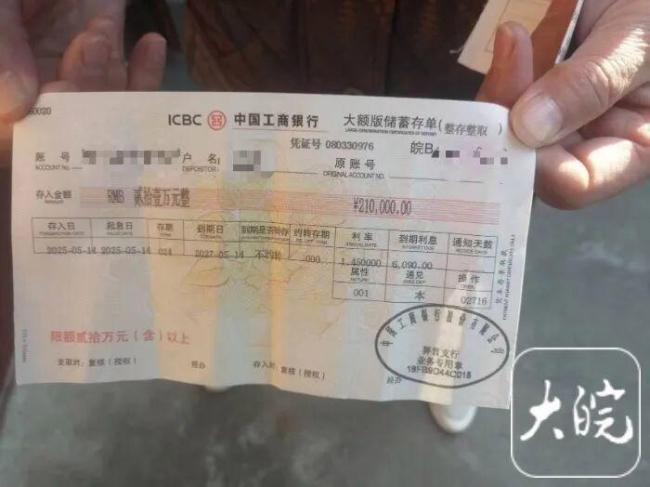 60020
ICBC 中国工商银行 大额版储蓄存单(整存整取)
LARGE-DENOMINATION CERTIFICATES OF DEPOSIT
凭证号 080330976 皖B
账号 户名 原账号
ACCOUNT NO. DEPOSITOR ORIGINAL ACCOUNT NO.
存入金额 RMB 贰拾壹万元整 ¥210,000.00
存入日 起息日 存期 到期日 到期是否转存 约转存期 利率 到期利息 通知天数
2025-05-14 2025-05-14 024 2027-05-14 不约转 000 1.450000 6,090.00
属性 通兑 操作
001 本 02716
限额贰拾万元(含)以上
支取时:复核(授权) 经办 复核(授权) 经办
中国工商银行股份有限公司
支行
业务专用章
大皖